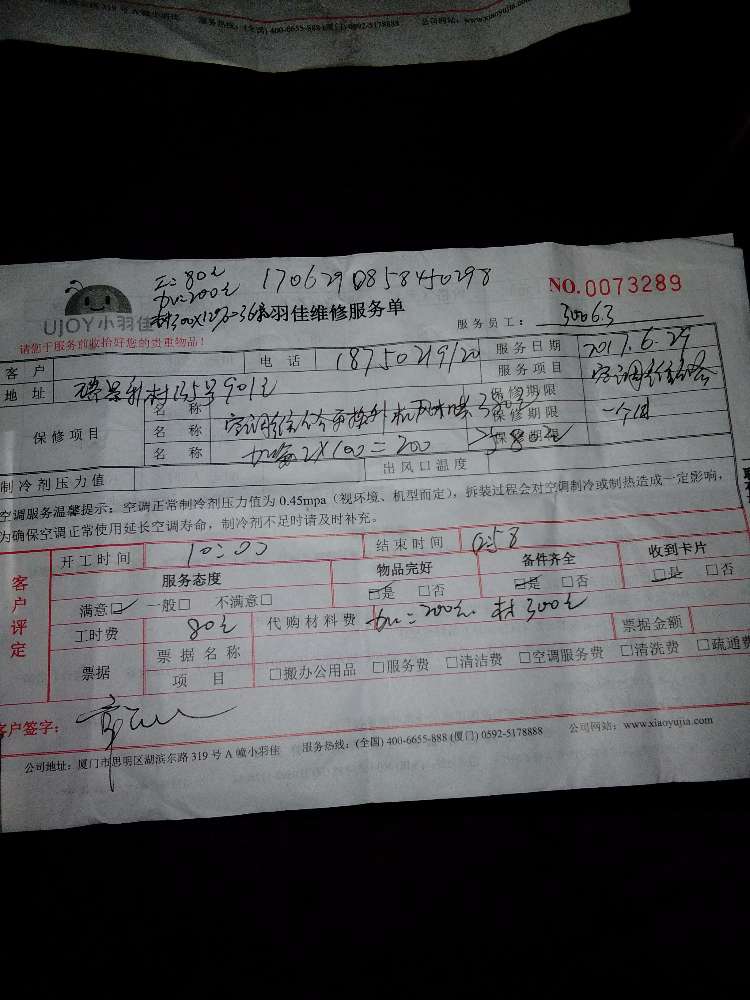 服务热线：(全国) 400-6655-888 (厦门) 0592-5178888
工=80元 170629085845 0298
加=200元 NO.0073289
UJOY小羽佳 羽佳维修服务单 服务员工： 30063
请您于服务前收拾好您的贵重物品！
客户 电话 18750219120 服务日期 2017.6.29
地址 号901 服务项目 空调
保修项目 名称 空调 保修期限 一个月
名称 保修期限
名称 加氟2X100=200 保修期限
制冷剂压力值 出风口温度
空调服务温馨提示：空调正常制冷剂压力值为 0.45mpa（视环境、机型而定），拆装过程会对空调制冷或制热造成一定影响，
为确保空调正常使用延长空调寿命，制冷剂不足时请及时补充。
客户评定 开工时间 10:00 结束时间
服务态度 物品完好 备件齐全 收到卡片
满意☑ 一般□ 不满意□ □是 □否 □是 □否 □是 □否
工时费 80元 代购材料费 加=200元 材300元 票据金额
票据 票据名称
项目 □搬办公用品 □服务费 □清洁费 □空调服务费 □清洗费 □疏通费
客户签字：
公司地址：厦门市思明区湖滨东路 319 号 A 幢小羽佳 服务热线：(全国) 400-6655-888 (厦门) 0592-5178888 公司网站：www.xiaoyujia.com